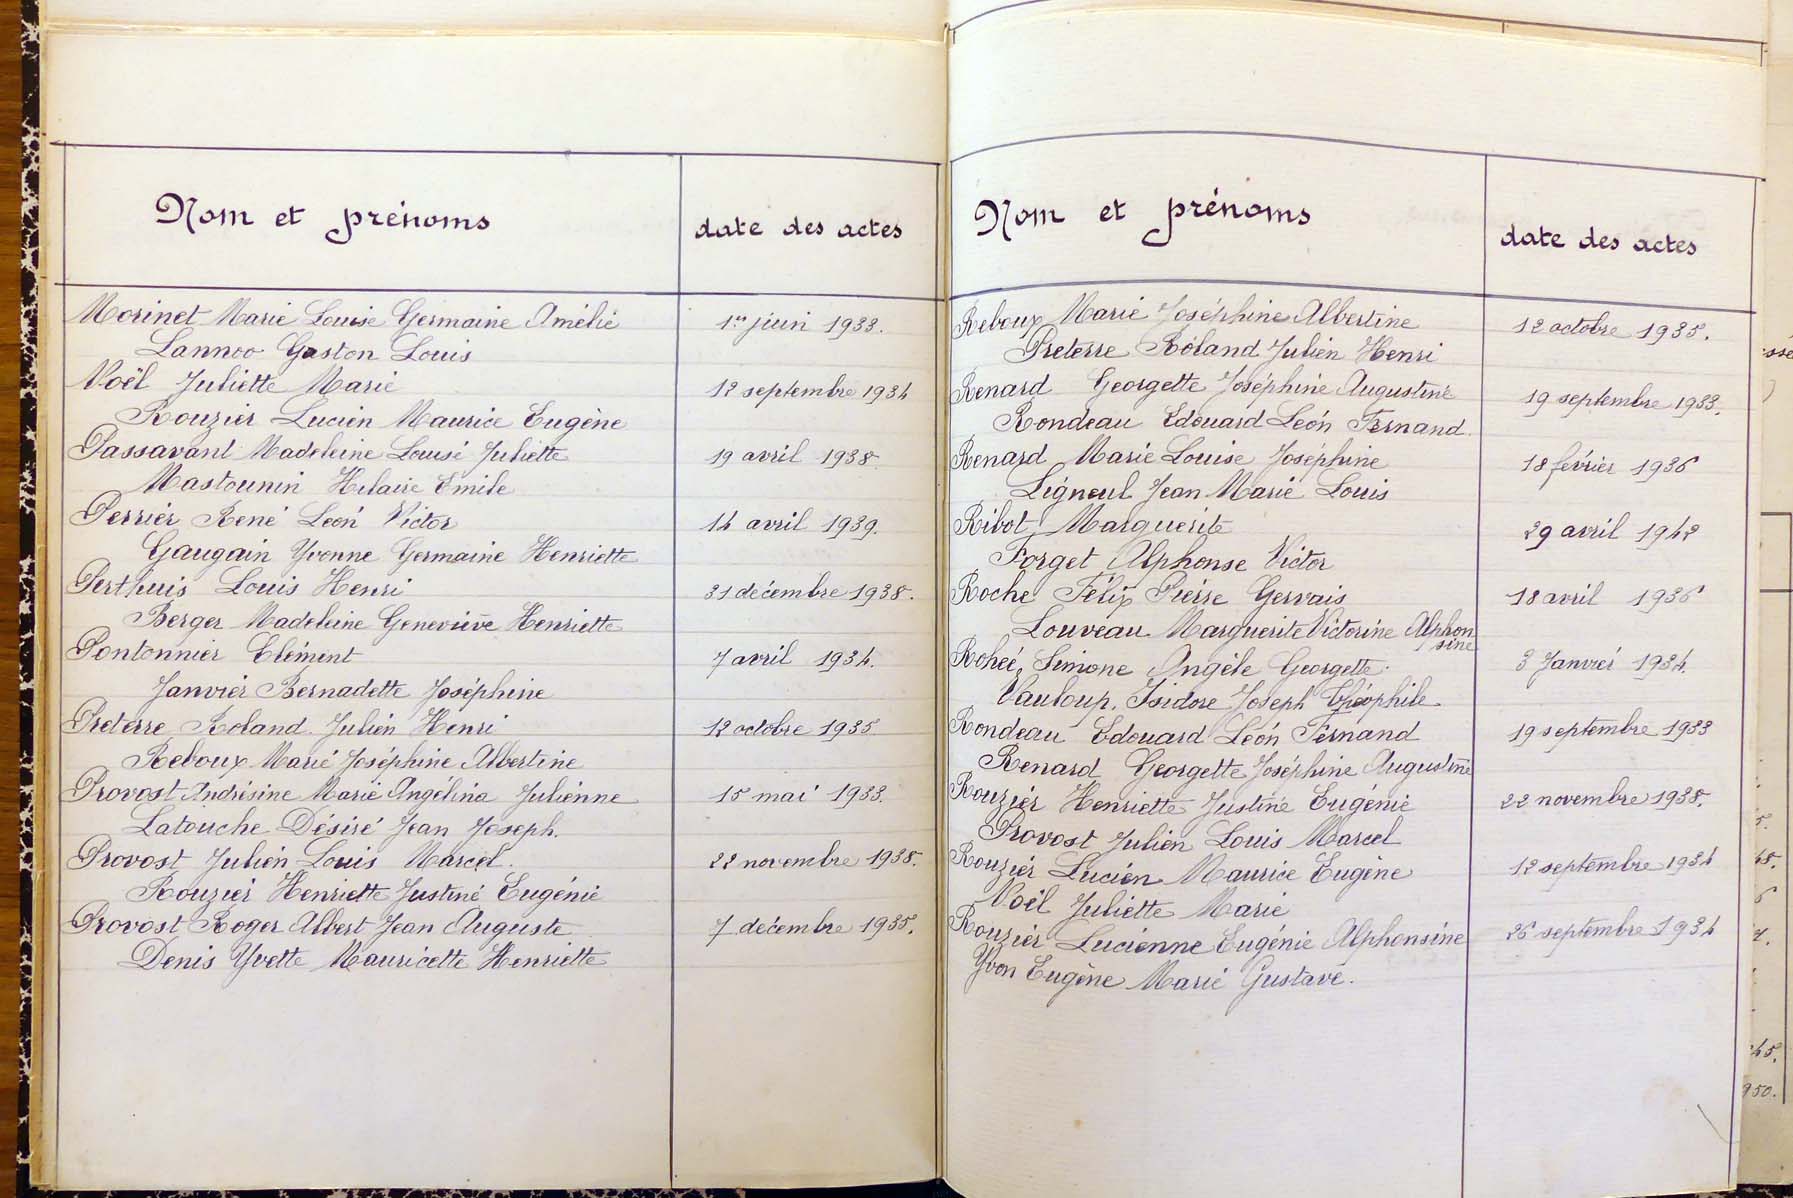 Nom et prénoms
date des actes
Morinet Marie Louise Germaine Amélie
1er juin 1933.
Lannoo Gaston Louis
Noël Juliette Marie
12 septembre 1934
Rouzier Lucien Maurice Eugène
Passavant Madeleine Louise Juliette
19 avril 1938
Mastounin Hilaire Emile
Perrier René Léon Victor
14 avril 1939.
Gaugain Yvonne Germaine Henriette
Perthuis Louis Henri
31 décembre 1938.
Berger Madeleine Geneviève Henriette
Pontonnier Clément
7 avril 1934.
Janvier Bernadette Joséphine
Preterre Roland Julien Henri
12 octobre 1935
Reboux Marie Joséphine Albertine
Provost Andrisine Marie Angélina Julienne
15 mai 1933.
Latouche Désiré Jean Joseph.
Provost Julien Louis Marcel.
22 novembre 1938.
Rouzier Henriette Justine Eugénie
Provost Roger Albert Jean Auguste
7 décembre 1935.
Denis Yvette Mauricette Henriette
Nom et prénoms
date des actes
Reboux Marie Joséphine Albertine
12 octobre 1935.
Preterre Roland Julien Henri
Renard Georgette Joséphine Augustine
19 septembre 1933.
Rondeau Edouard Léon Fernand.
Renard Marie Louise Joséphine
18 février 1936
Ligneul Jean Marie Louis
Ribot Marguerite
29 avril 1942
Forget Alphonse Victor
Roche Félix Pierre Gervais
18 avril 1936
Louveau Marguerite Victorine Alphon
sine
Roheé Simone Angèle Georgette.
3 Janvier 1934.
Vauloup. Isidore Joseph Théophile
Rondeau Edouard Léon Fernand
19 septembre 1933
Renard Georgette Joséphine Augustine
Rouzier Henriette Justine Eugénie
22 novembre 1938.
Provost Julien Louis Marcel
Rouzier Lucien Maurice Eugène
12 septembre 1934
Noël Juliette Marie
Rouzier Lucienne Eugénie Alphonsine
26 septembre 1934
Yvon Eugène Marie Gustave.